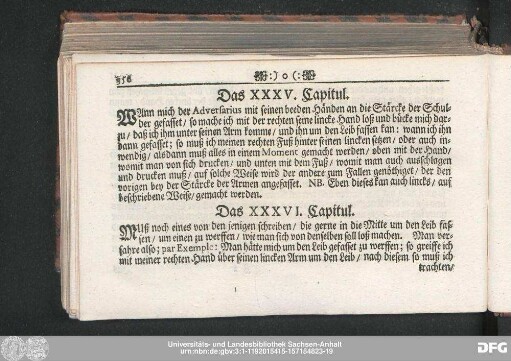 356 :) o (:
Das XXXV. Capitul.
WAnn mich der Adversarius mit seinen beeden Händen an die Stärcke der Schul-
der gefasset / so mache ich mit der rechten seine lincke Hand loß und bücke mich dar-
zu / daß ich ihm unter seinen Arm komme / und ihn um den Leib fassen kan: wann ich ihn
dann gefasset; so muß ich meinen rechten Fuß hinter seinen lincken setzen / oder auch in-
wendig / alsdann muß alles in einem Moment gemacht werden / oben mit der Hand /
womit man von sich drucken / und unten mit dem Fuß / womit man auch ausschlagen
und drucken muß / auf solche Weise wird der andere zum Fallen genöthiget / der den
vorigen bey der Stärcke der Armen angefasset. NB. Eben dieses kan auch lincks / auf
beschriebene Weise / gemacht werden.
Das XXXVI. Capitul.
MUß noch eines von den jenigen schreiben / die gerne in die Mitte um den Leib fas-
sen / um einen zu werffen / wie man sich von denselben soll loß machen. Man ver-
fahre also; par Exemple: Man hätte mich um den Leib gefasset zu werffen; so greiffe ich
mit meiner rechten Hand über seinen lincken Arm um den Leib / nach diesem so muß ich
trachten /
Universitäts- und Landesbibliothek Sachsen-Anhalt
urn:nbn:de:gbv:3:1-1192015415-157154823-19
DFG